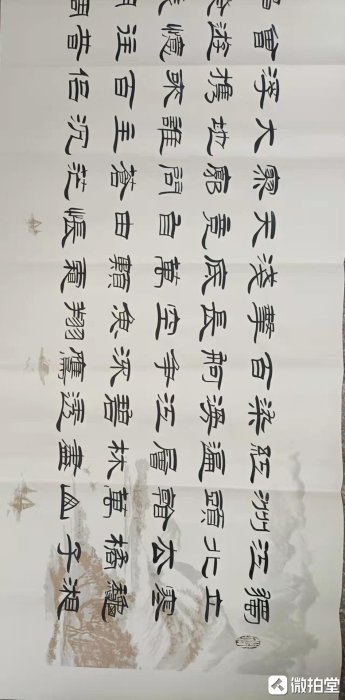 獨立寒龝湘
江北去橘子
洲頭看萬山
紅遍層林盡
染漫江碧透
百舸爭流鷹
擊長空魚翔
淺底萬類霜
天競自由悵
寥廓問蒼茫
大地誰主沉
浮攜來百侶
曾遊憶往昔
微拍堂